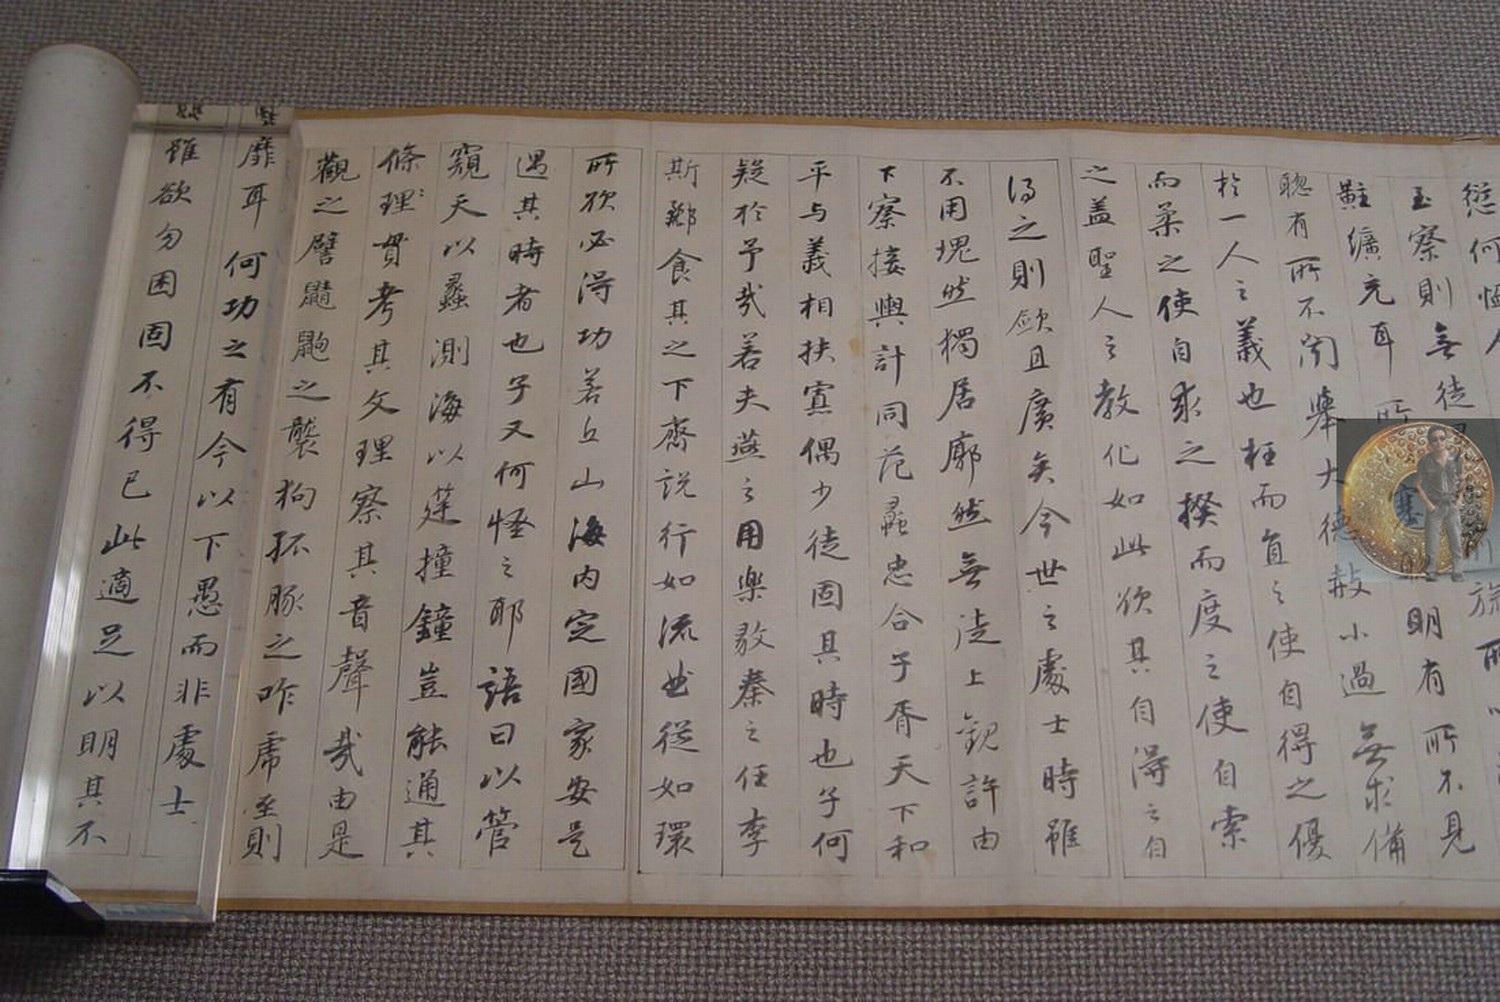 愆何恤人旒所以
至察則無徒明有所不見
黈纊充耳所塞
聰有所不聞舉大德赦小過無求備
於一人之義也枉而直之使自得之優
而柔之使自求之揆而度之使自索
之蓋聖人之教化如此欲其自得之自
得之則敏且廣矣今世之處士時雖
不用塊然獨居廓然無徒上觀許由
下察接輿計同范蠡忠合子胥天下和
平与義相扶寡偶少徒固其時也子何
疑於予哉若夫燕之用樂毅秦之任李
斯酈食其之下齊說行如流曲從如環
所欲必得功若丘山海內定國家安是
遇其時者也子又何怪之耶語曰以管
窺天以蠡測海以筳撞鐘豈能通其
條理貫考其文理察其音聲哉由是
觀之譬鼱鼩之襲狗孤豚之咋虎至則
靡耳何功之有今以下愚而非處士
雖欲勿困固不得已此適足以明其不